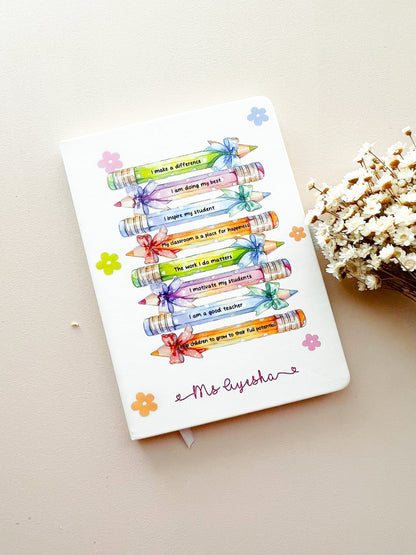 I make a difference
I am doing my best
I inspire my student
My classroom is a place for happiness
The work I do matters
I motivate my students
I am a good teacher
children to grow to their full potential
Ms Ayesha